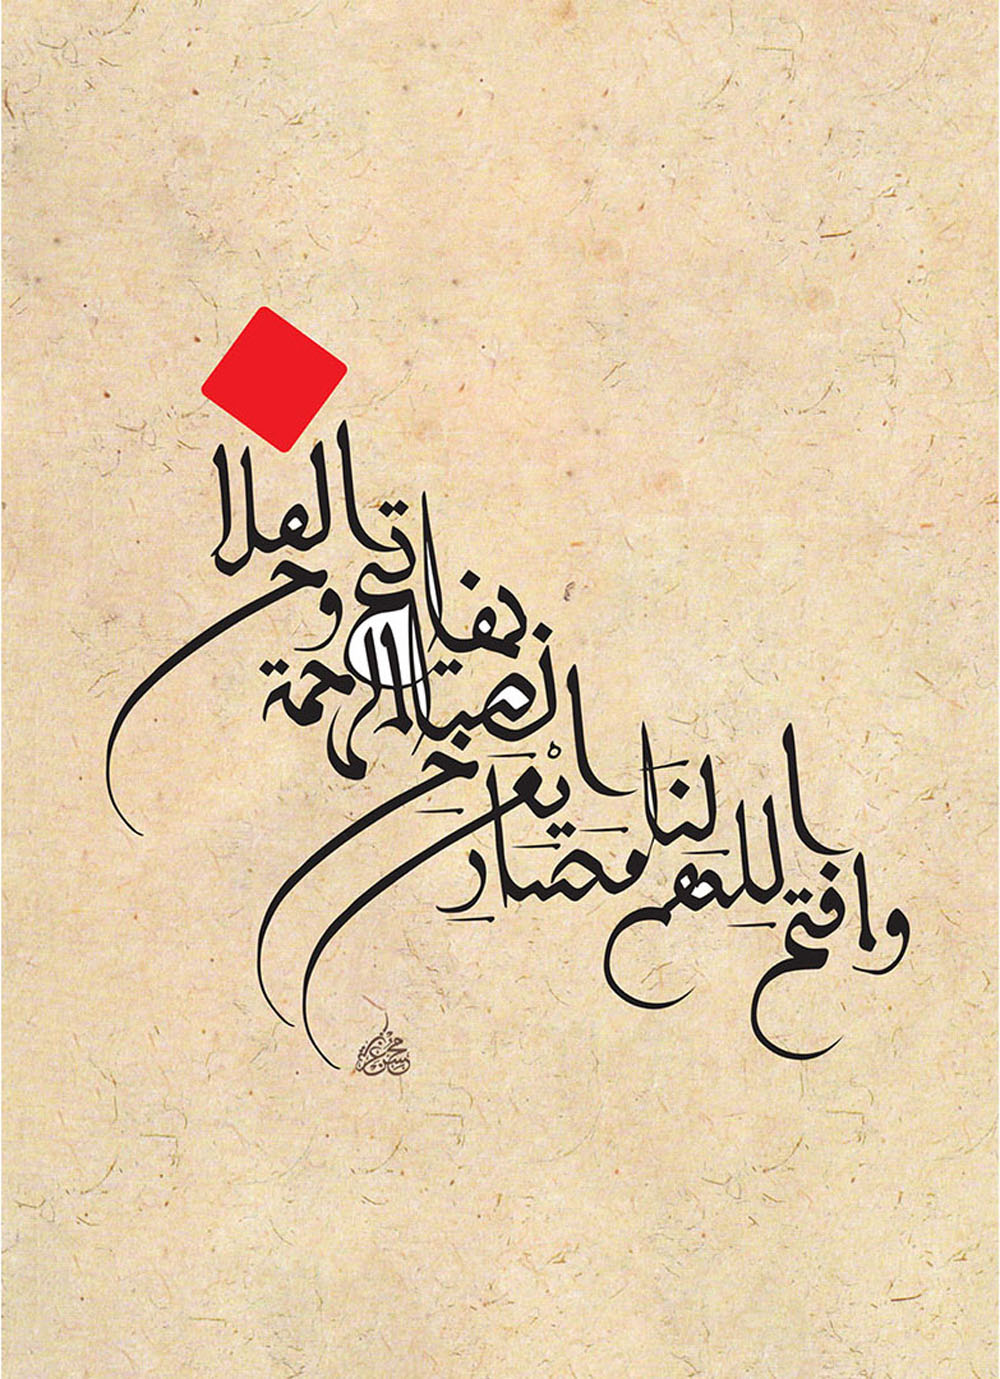 وافتح اللهم لنا مصاريع الصباح بمفاتيح الرحمة والفلاح
محسن